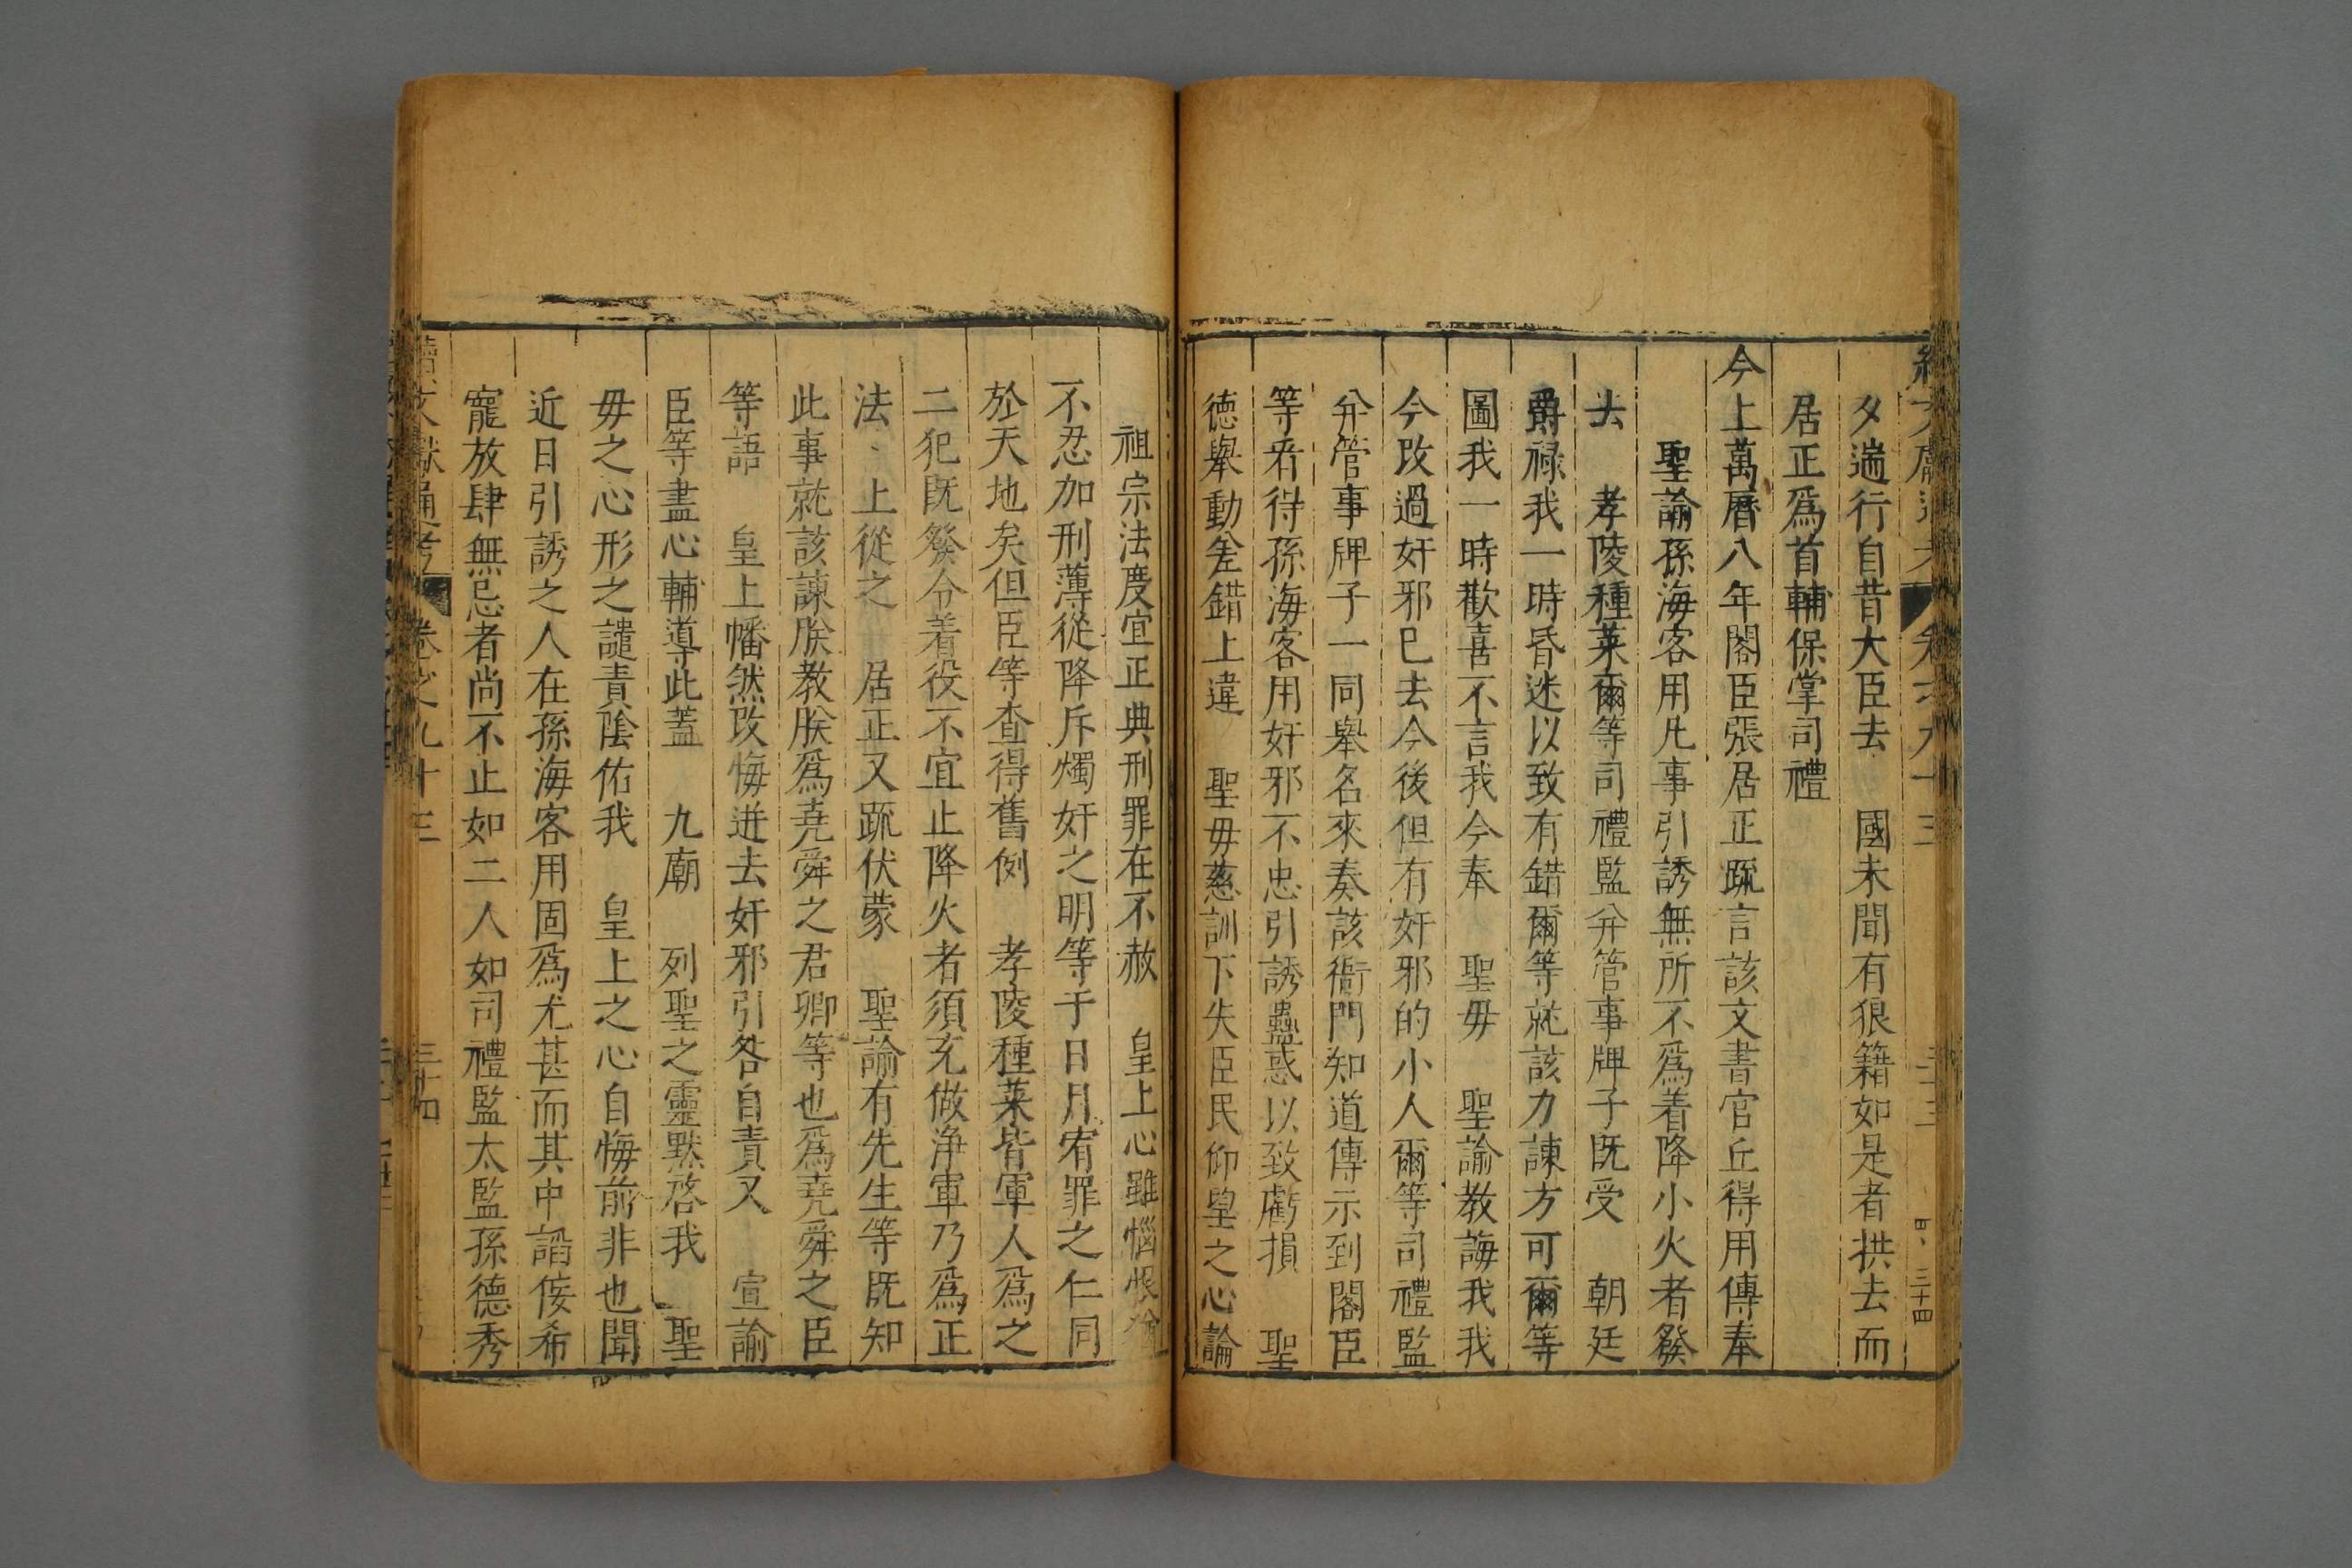 夕遄行自昔大臣去　國未聞有狼籍如是者拱去而
居正爲首輔保掌司禮
今上萬曆八年閣臣張居正疏言該文書官丘得用傳奉
聖諭孫海客用凡事引誘無所不爲着降小火者發
去　孝陵種菜爾等司禮監并管事牌子既受　朝廷
爵祿我一時昏迷以致有錯爾等就該力諫方可爾等
圖我一時歡喜不言我今奉　聖毋　聖諭教誨我我
今改過奸邪已去今後但有奸邪的小人爾等司禮監
并管事牌子一同舉名來奏該衙門知道傳示到閣臣
等看得孫海客用奸邪不忠引誘蠱惑以致虧損　聖
德舉動差錯上違　聖毋慈訓下失臣民仰望之心論
祖宗法度宜正典刑罪在不赦　皇上心雖惱恨
不忍加刑薄從降斥燭奸之明等于日月宥罪之仁同
於天地矣但臣等查得舊例　孝陵種菜皆軍人爲之
二犯既發令着役不宜止降火者須充做淨軍乃爲正
法　上從之　居正又疏伏蒙　聖諭有先生等既知
此事就該諫朕教朕爲堯舜之君卿等也爲堯舜之臣
等語　皇上幡然改悔迸去奸邪引咎自責又　宣諭
臣等盡心輔導此蓋　九廟　列聖之靈默啓我　聖
毋之心形之譴責陰佑我　皇上之心自悔前非也聞
近日引誘之人在孫海客用固爲尤甚而其中諂佞希
寵放肆無忌者尚不止如二人如司禮監太監孫德秀
續文獻通考　卷之九十三　三十四